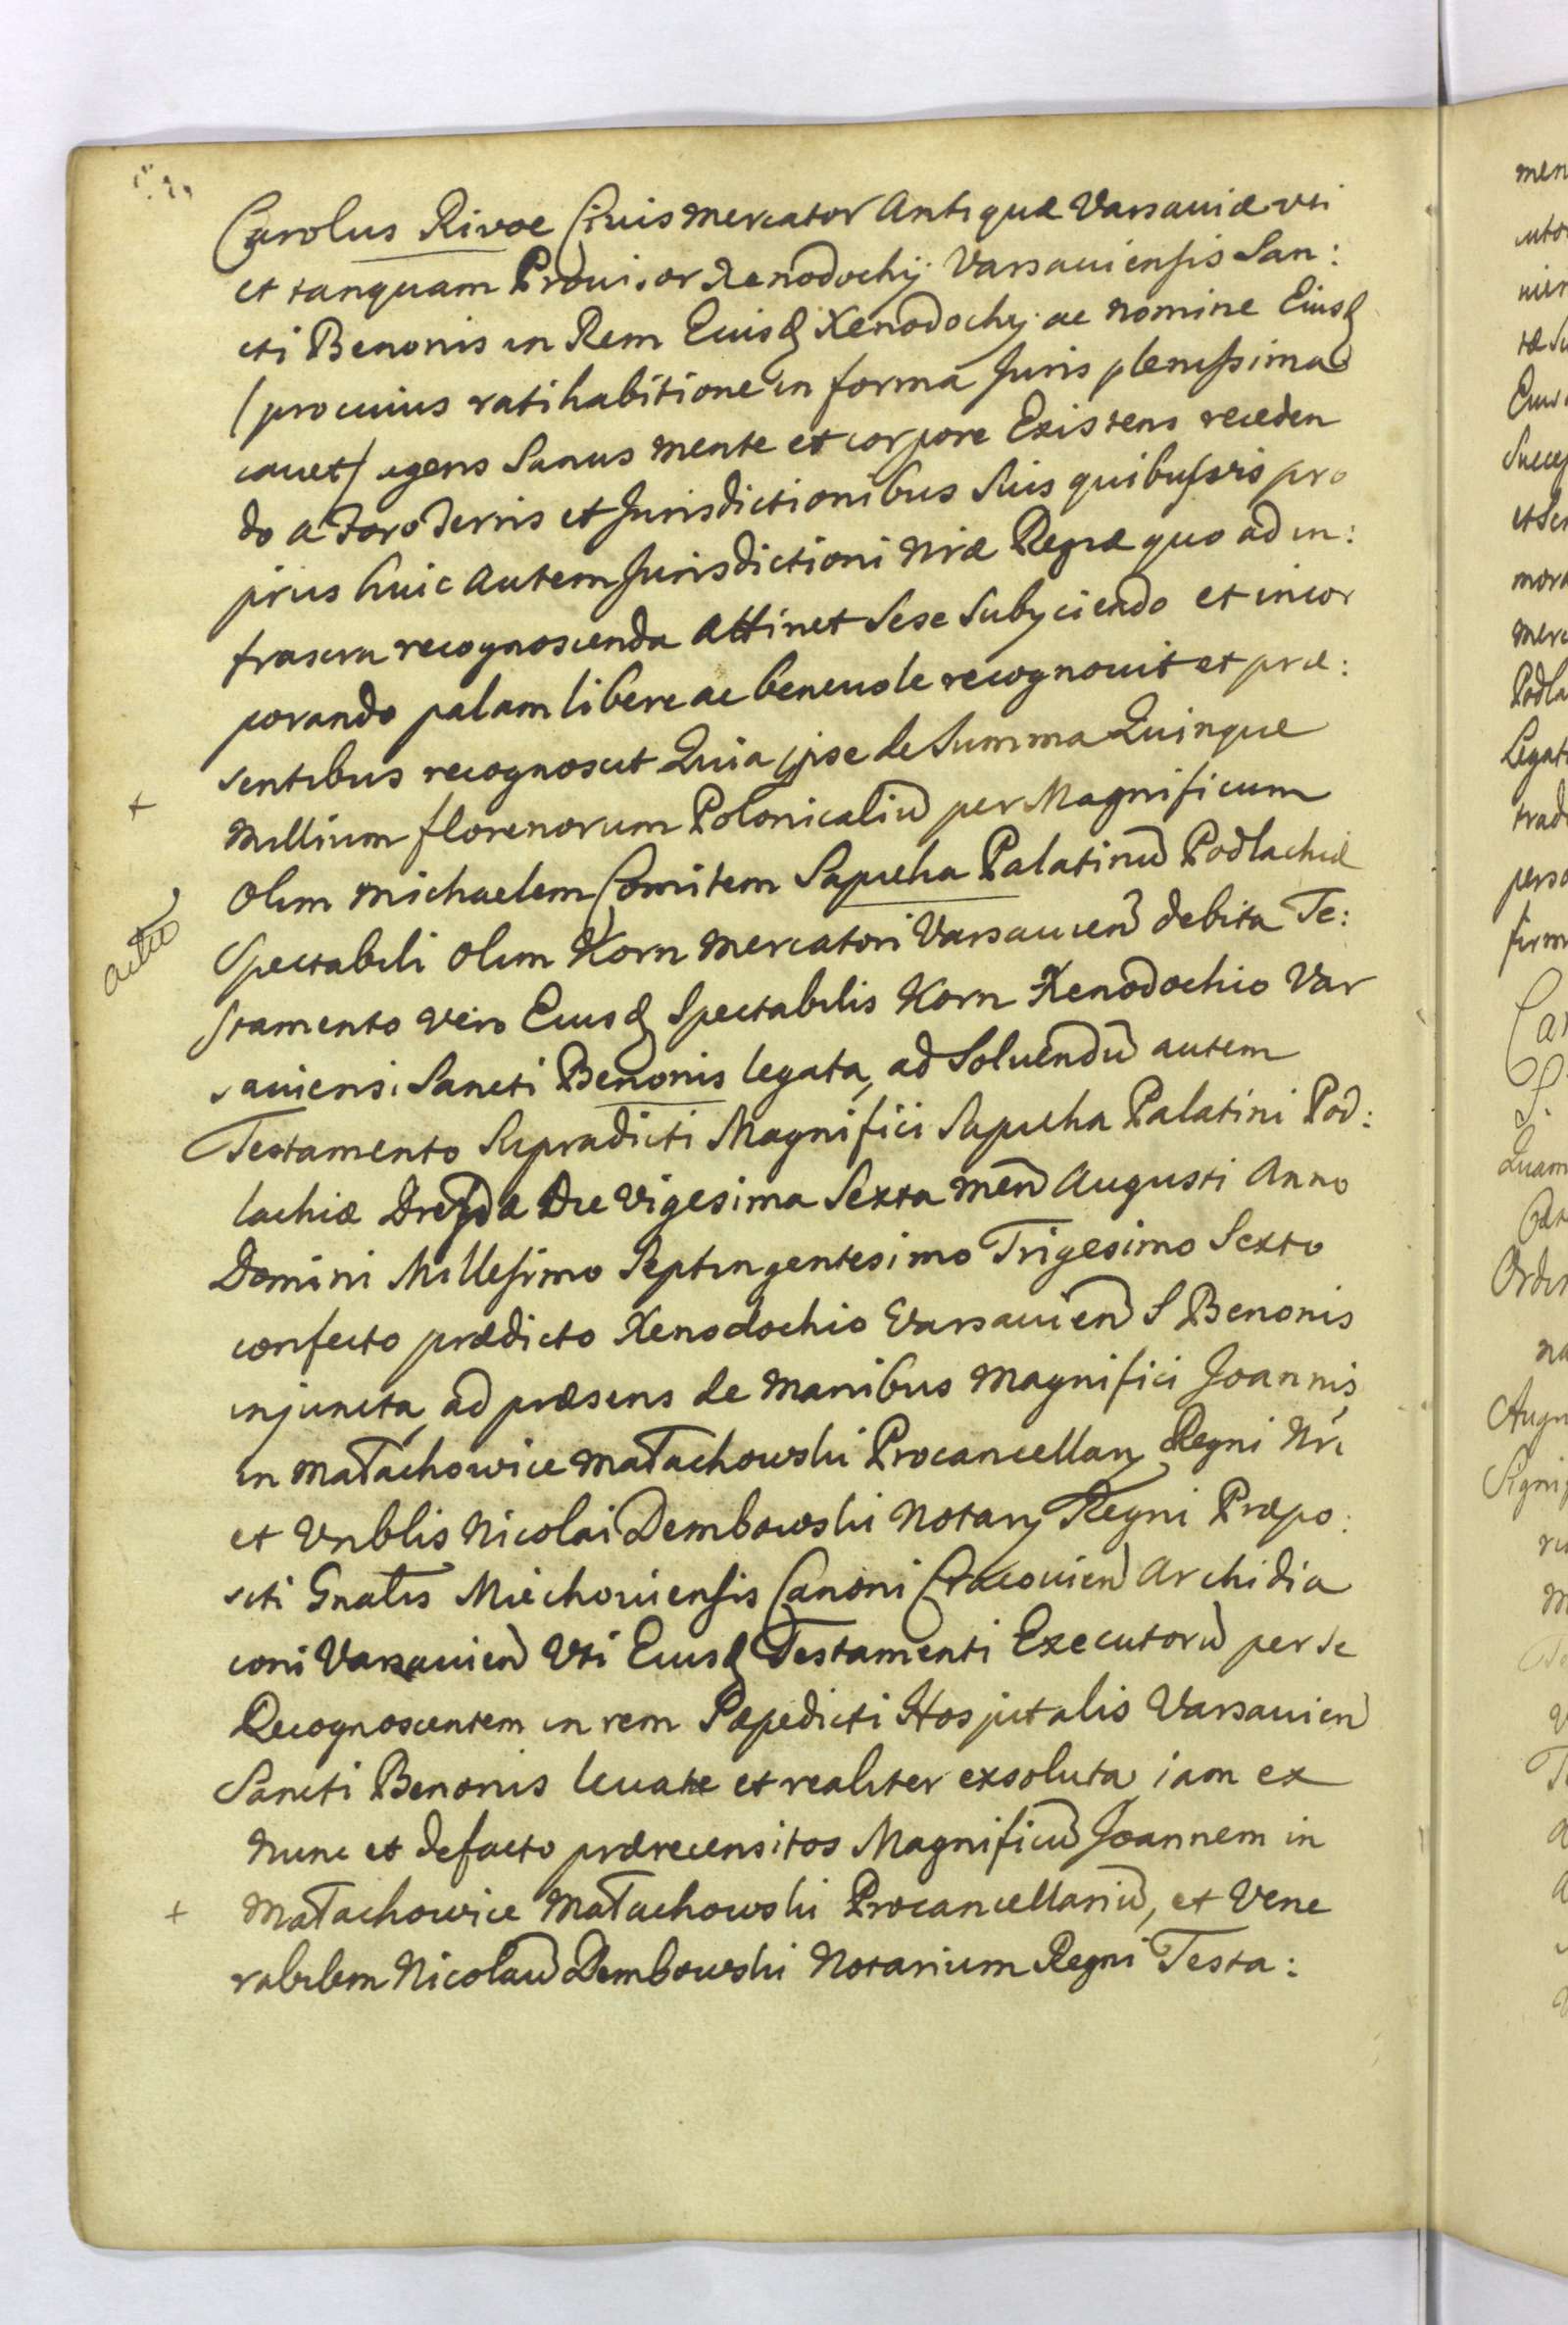 Carolus Rivoe Civis mercator Antiquæ Varsaviæ uti
et tanquam Provisor Xenodochij Varsauiensis San:
cti Benonis in Rem Eiusd Xenodochij ac nomine Eiusd
/pro cuius ratihabitione in forma Juris plenissima
cauet/ agens Sanus mente et corpore Existens receden
do a Foro Terris et Jurisdictionibus Suis quibusvis pro
prius huic autem Jurisdictioni Nræ Regiæ quo ad in:
frascra recognoscenda Attinet Sese Subyciendo et incor
porando palam libere ac beneuole recognouit et præ:
sentibus recognoscit Quia ipse de Summa Quinque
Millium florenorum Polonicaliu per Magnificum
olim Michaelem Comitem Sapieha Palatinu Podlachiæ
Spectabili olim Korn Mercatori Varsauien debita Te:
stamento vero Eiusd Spectabilis Korn Xenodochio Var
sauiensi Sancti Benonis legata, ad Soluendu autem
Testamento Supradicti Magnifici Sapieha Palatini Pod:
lachiæ Dresdæ Die Vigesima Sexta men Augusti Anno
Domini Millesimo Septingentesimo Trigesimo Sexto
confecto prædicto Xenodochio Varsauien S Benonis
injuncta, ad præsens de Manibus Magnifici Joannis
in Małachowice Małachowski Procancellarij Regni Nri
et Vnblis Nicolai Dembowski Notarij Regni Præpo:
siti Gnalis Miechouiensis Canoni Cracouien Archidia
coni Varsauien Uti Eiusd Testamenti Executoru per se
Recognoscentem in rem Hospitalis Varsauien
Sancti Benonis leuate et realiter exsoluta, iam ex
nunc et defacto prærecensitos Magnificu Joannem in
Małachowice Małachowski Procancellariu, et Vene
rabilem Nicolau Dembowski Notarium Regni Testa:
+
+